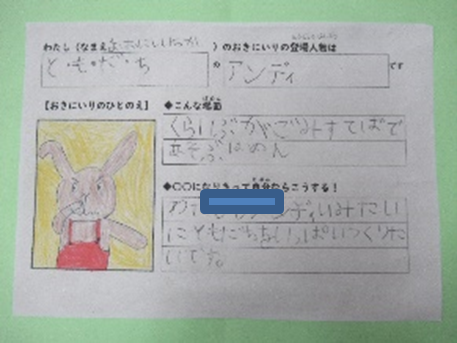 わたし（なまえ　　　　）のおきにいりの登場人物は
と・も・だ・ち の アンディ です
【おきにいりのひとのえ】
◆こんな場面
くらいぶがごみすてばで
あそぶばめん
◆〇〇になりきって自分ならこうする！
ディいみたい
にともだちをいっぱいつくりた
いです。